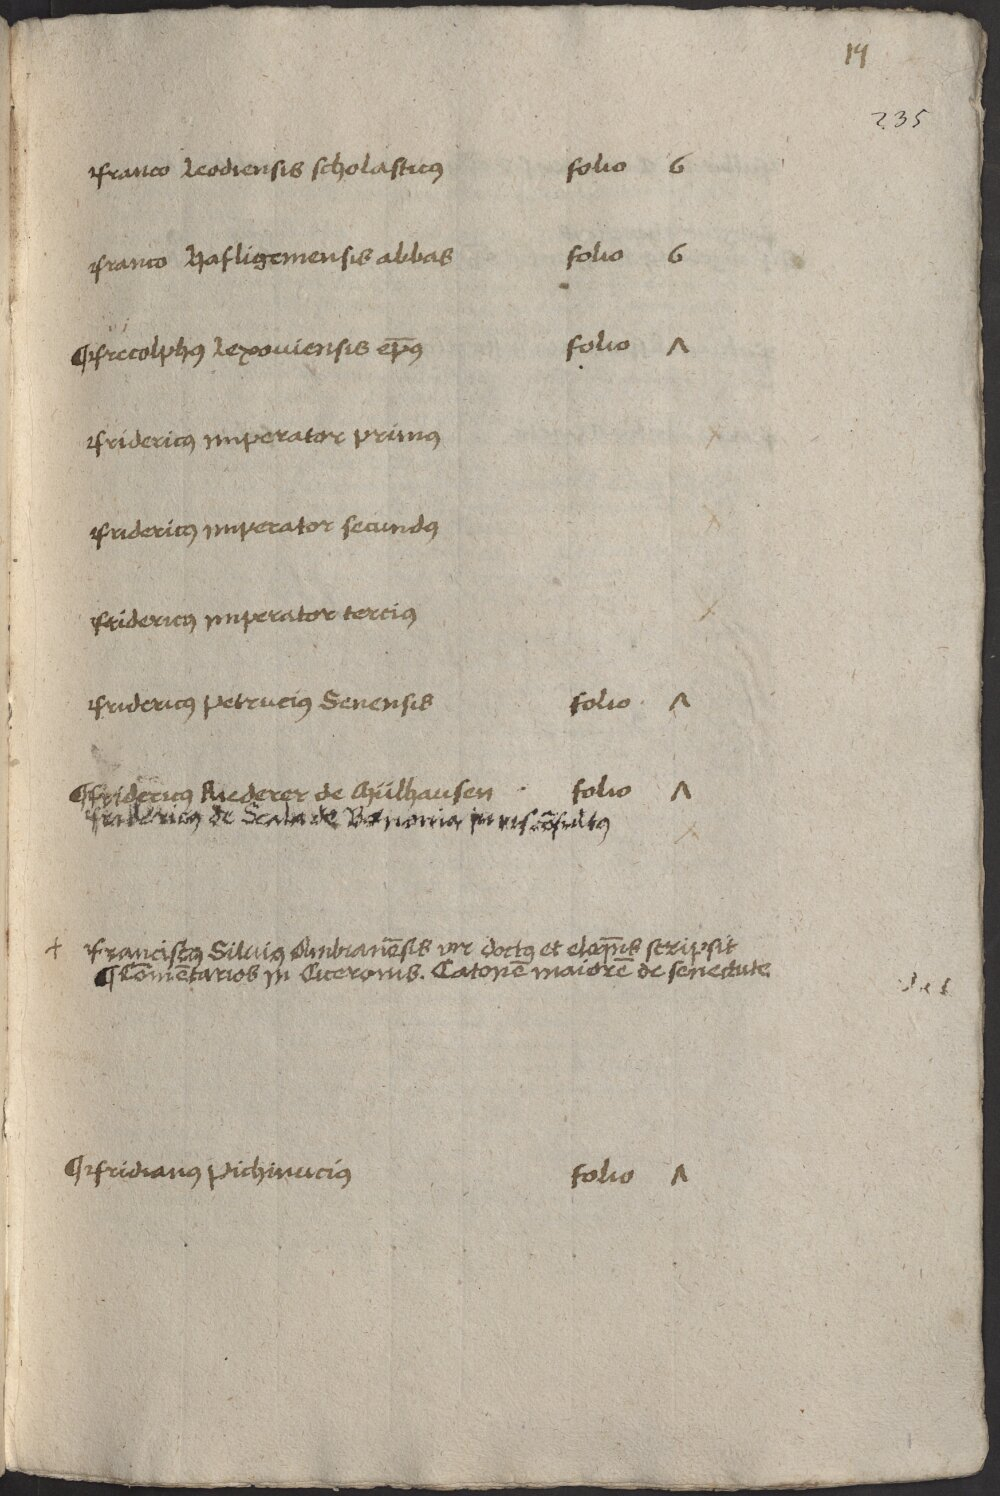 14
235
Franco Leodiensis scholasticꝰ folio 6
Franco Hafligemensis abbas folio 6
¶ Frecolphꝰ lexouiensis ep̄ꝰ folio ʌ
Fridericꝰ imperator primꝰ
Fridericꝰ imperator secundꝰ
Fridericꝰ imperator terciꝰ
Fridericꝰ petruciꝰ Senensis folio ʌ
¶ Fridericꝰ Riederer de Mülhausen folio ʌ
Fridericꝰ de Scala de Bononia iurisco̅sultꝰ
+ Franciscꝰ Siluiꝰ Ambiane̅sis vir doctꝰ et eloq̅ns scripsit
¶ Co̅me̅tarios in Ciceronis. Catone̅ maiore̅ de senectute
¶ Fridianꝰ pichinuciꝰ folio ʌ